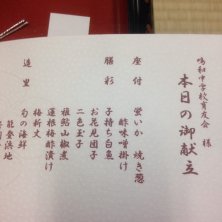 鳴和中学校育友会 様
本日の御献立
座付 蛍いか 焼き葱
酢味噌掛け
膳彩 子持ち白魚
お花見団子
二色玉子
稚鮎山椒煮
蓮根梅酢漬け
梅新丈
造里 旬の海鮮
能登浜地